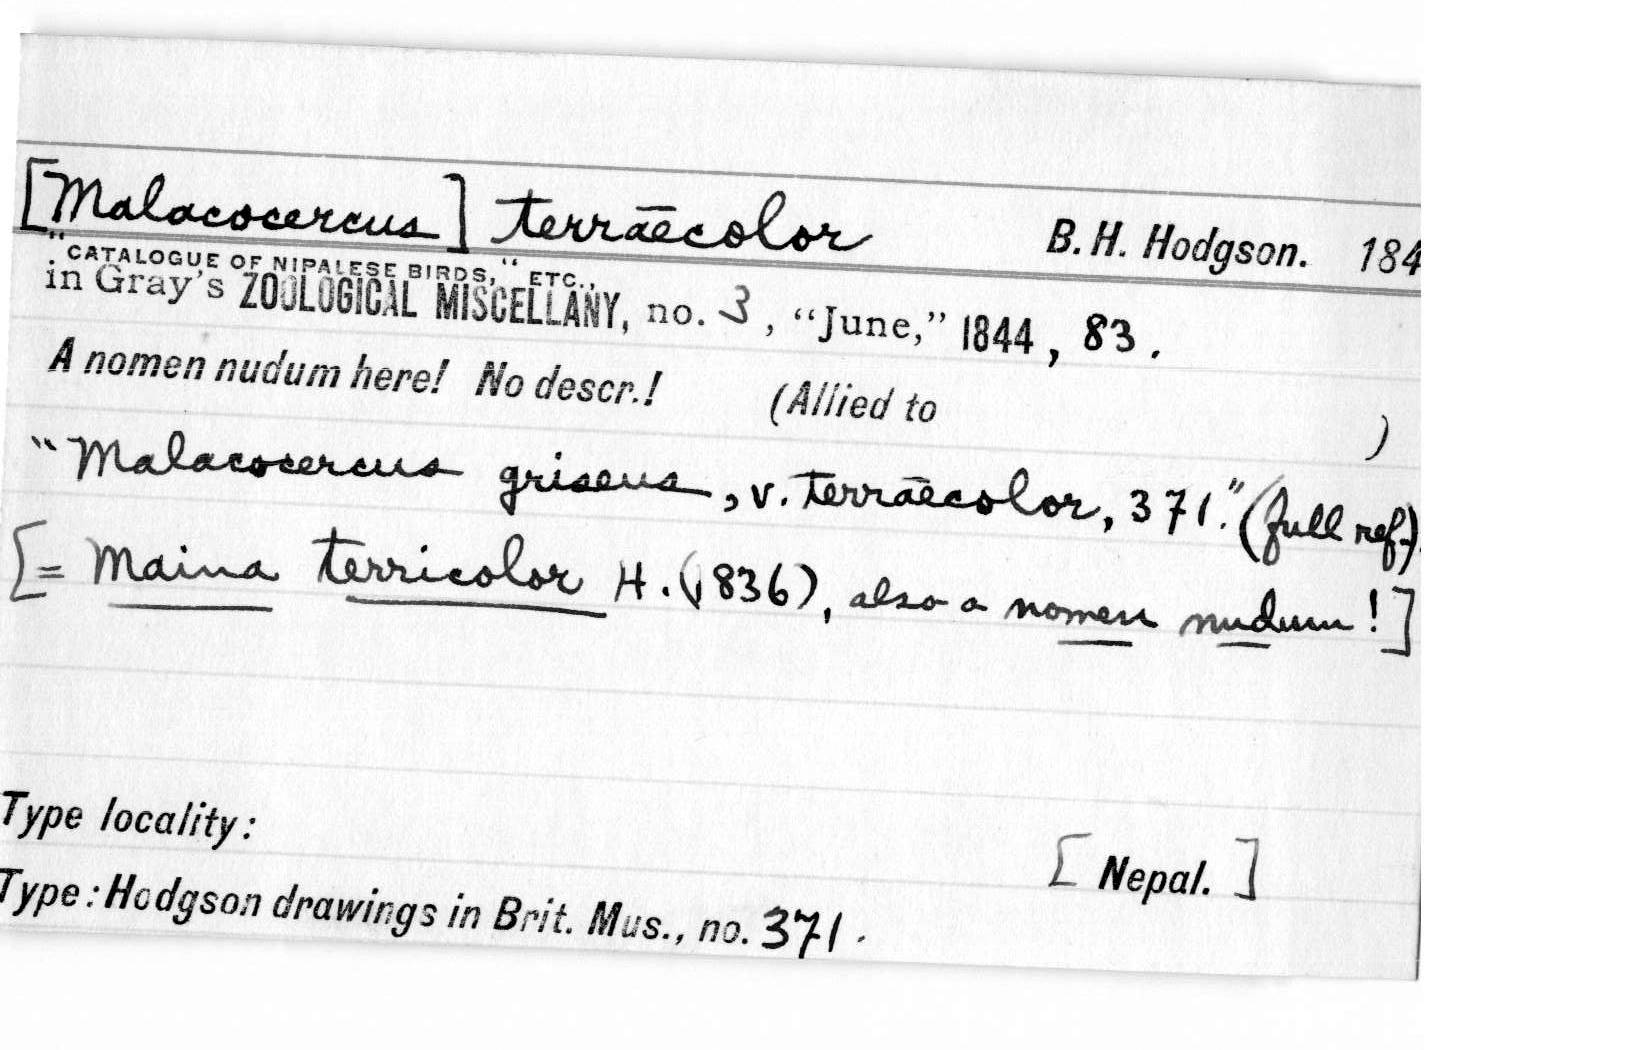 [Malacocercus] terrāecolor B. H. Hodgson. 184
"CATALOGUE OF NIPALESE BIRDS," ETC.,
in Gray's ZOOLOGICAL MISCELLANY, no. 3, "June," 1844, 83.
A nomen nudum here! No descr.! (Allied to )
"Malacocercus griseus, v. terrāecolor, 371." (full ref.)
[= Maina terricolor H. (1836), also a nomen nudum!]
Type locality: [Nepal.]
Type: Hodgson drawings in Brit. Mus., no. 371.